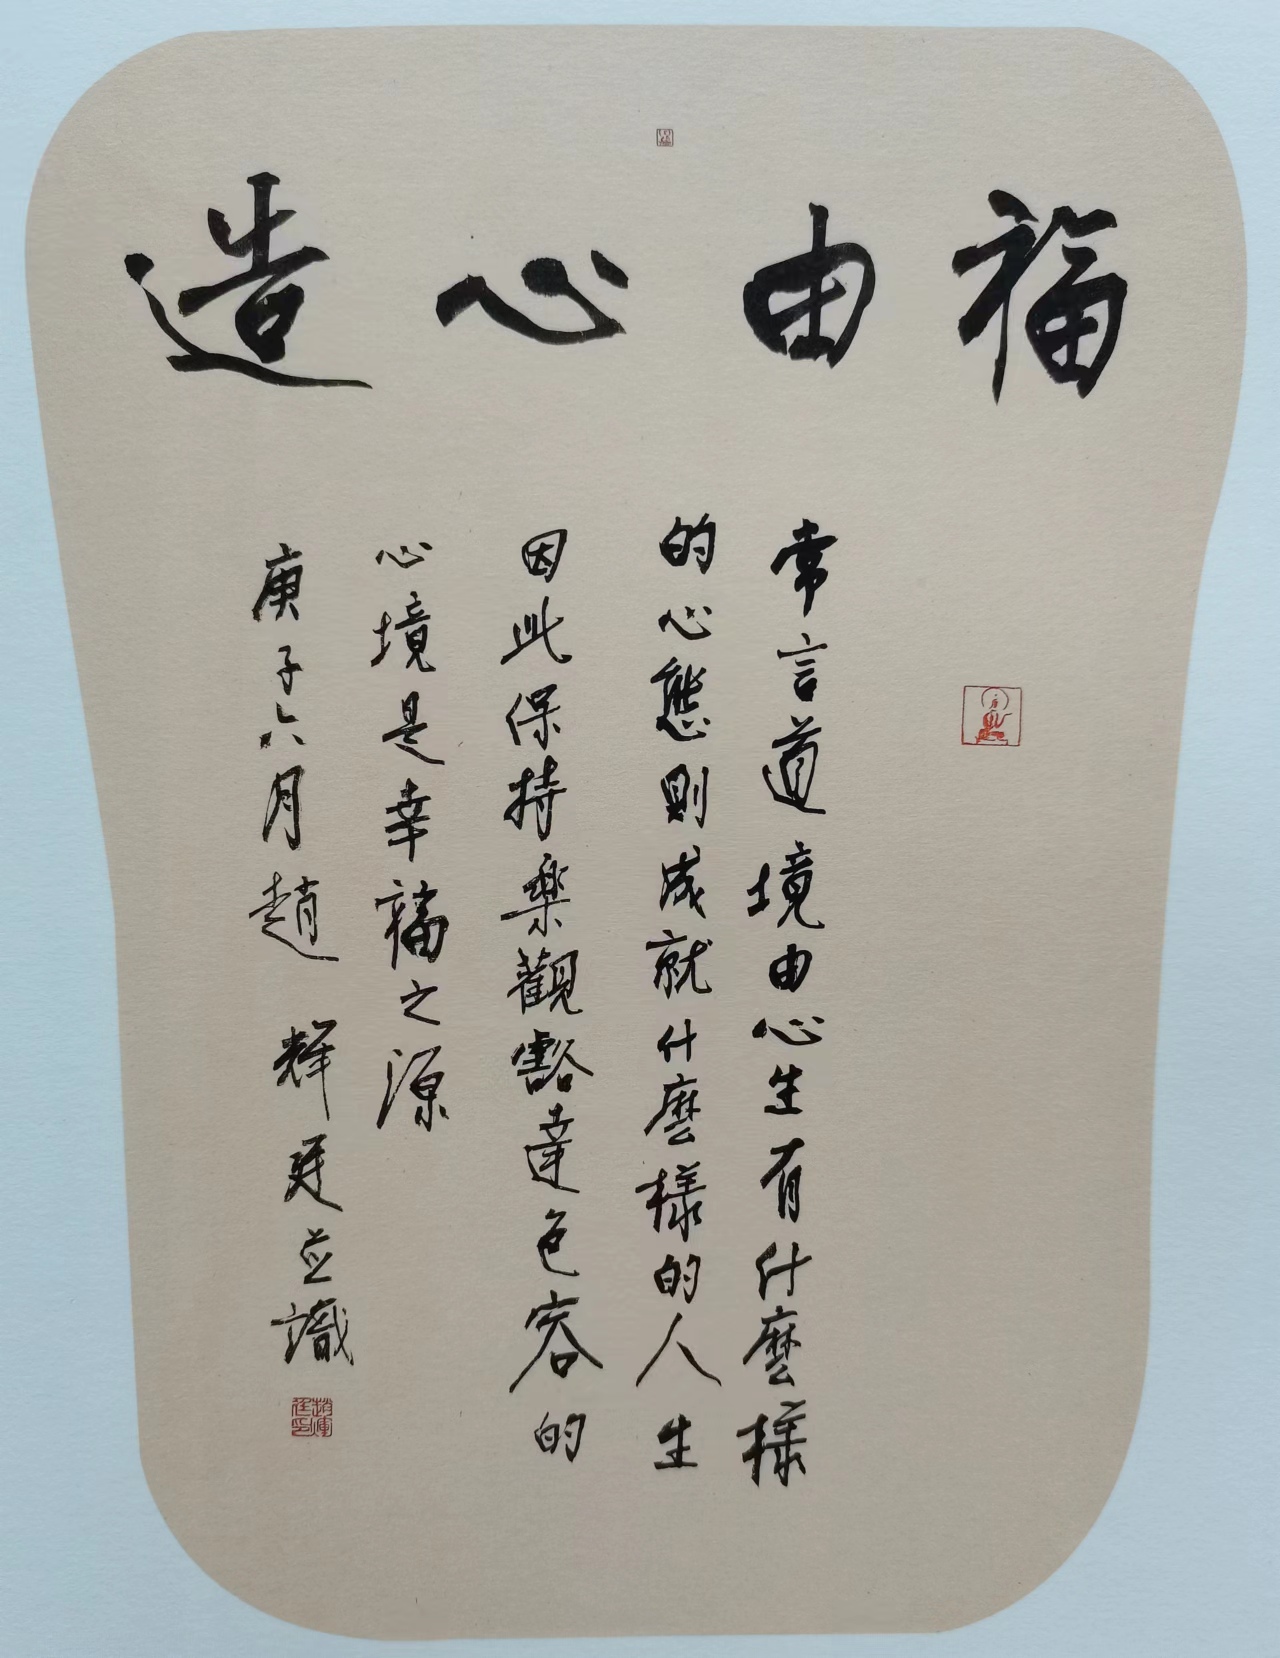 福由心造
常言道境由心生有什麼樣
的心態則成就什麼樣的人生
因此保持樂觀豁達包容的
心境是幸福之源
庚子六月趙輝廷並識